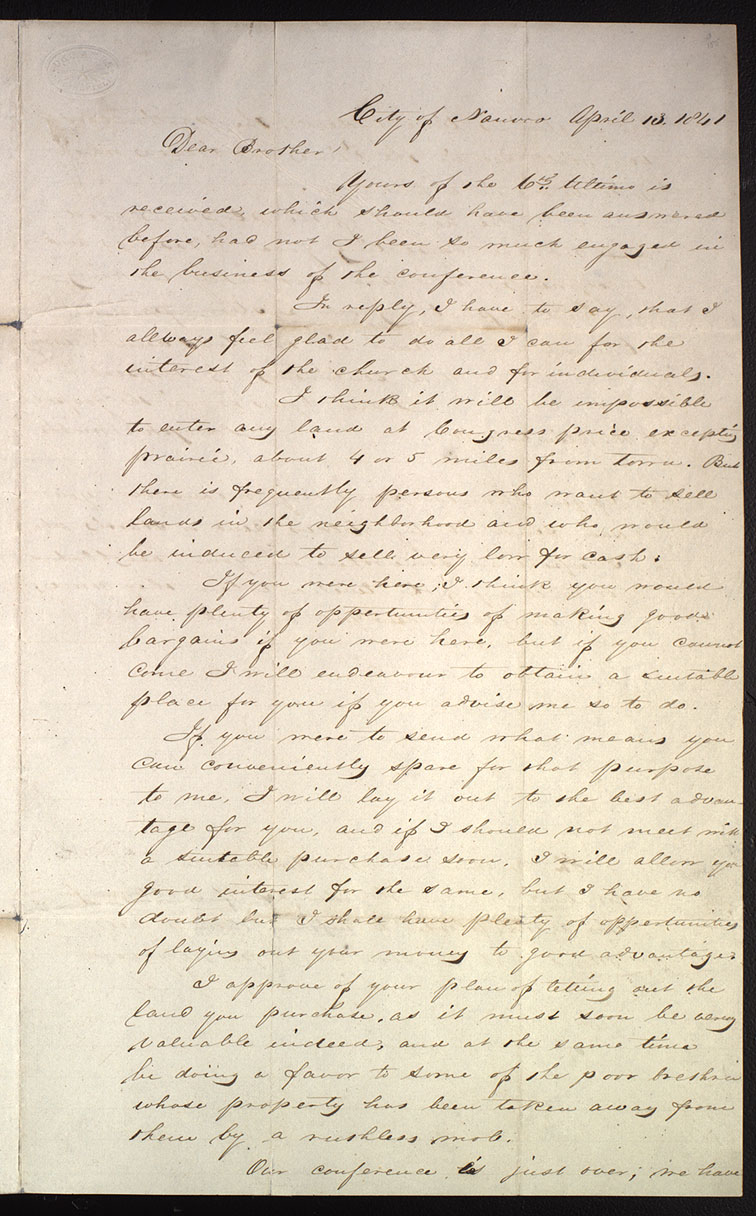 City of Nauvoo April 13. 1841
Dear Brother,
Yours of the 6th. Ultimo is
received, which should have been answered
before, had not I been so much engaged in
the business of the conference.
In reply, I have to say, that I
allways feel glad to do all I can for the
interest of the church and for individuals.
I think it will be impossible
to enter any land at Congress price excepting
prairie, about 4 or 5 miles from town. But
there is frequently persons who want to sell
lands in the neighborhood and who would
be induced to sell very low for cash.
If you were here, I think you would
have plenty of opportunities of making good
bargains if you were here, but if you cannot
come I will endeavour to obtain a suitable
place for you if you advise me so to do.
If you were to send what means you
can conveniently spare for that purpose
to me, I will lay it out to the best advan-
tage for you, and if I should not meet with
a suitable purchase soon, I will allow you
good interest for the same, but I have no
doubt but I shall have plenty of opportunities
of laying out your money to good advantage.
I approve of your plan of letting out the
land you purchase, as it must soon be very
valuable indeed, and at the same time
be doing a favor to some of the poor brethren
whose property has been taken away from
them by a ruthless mob.
Our conference is just over; we have